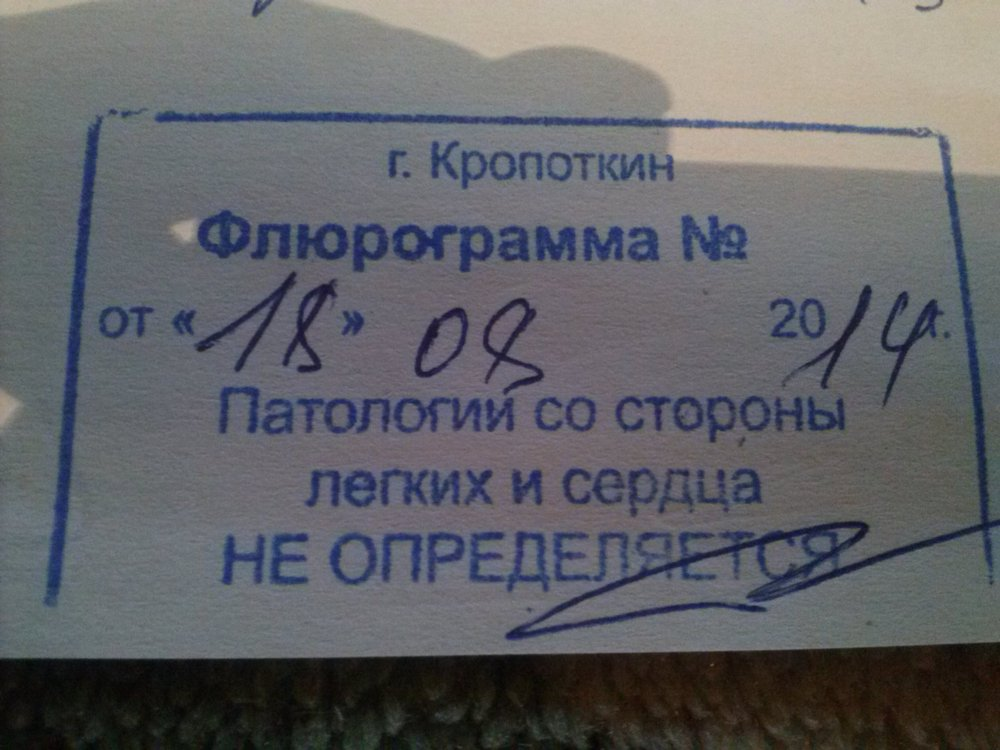 г. Кропоткин
Флюрограмма №
от «18» 08 2014г.
Патологий со стороны
легких и сердца
НЕ ОПРЕДЕЛЯЕТСЯ